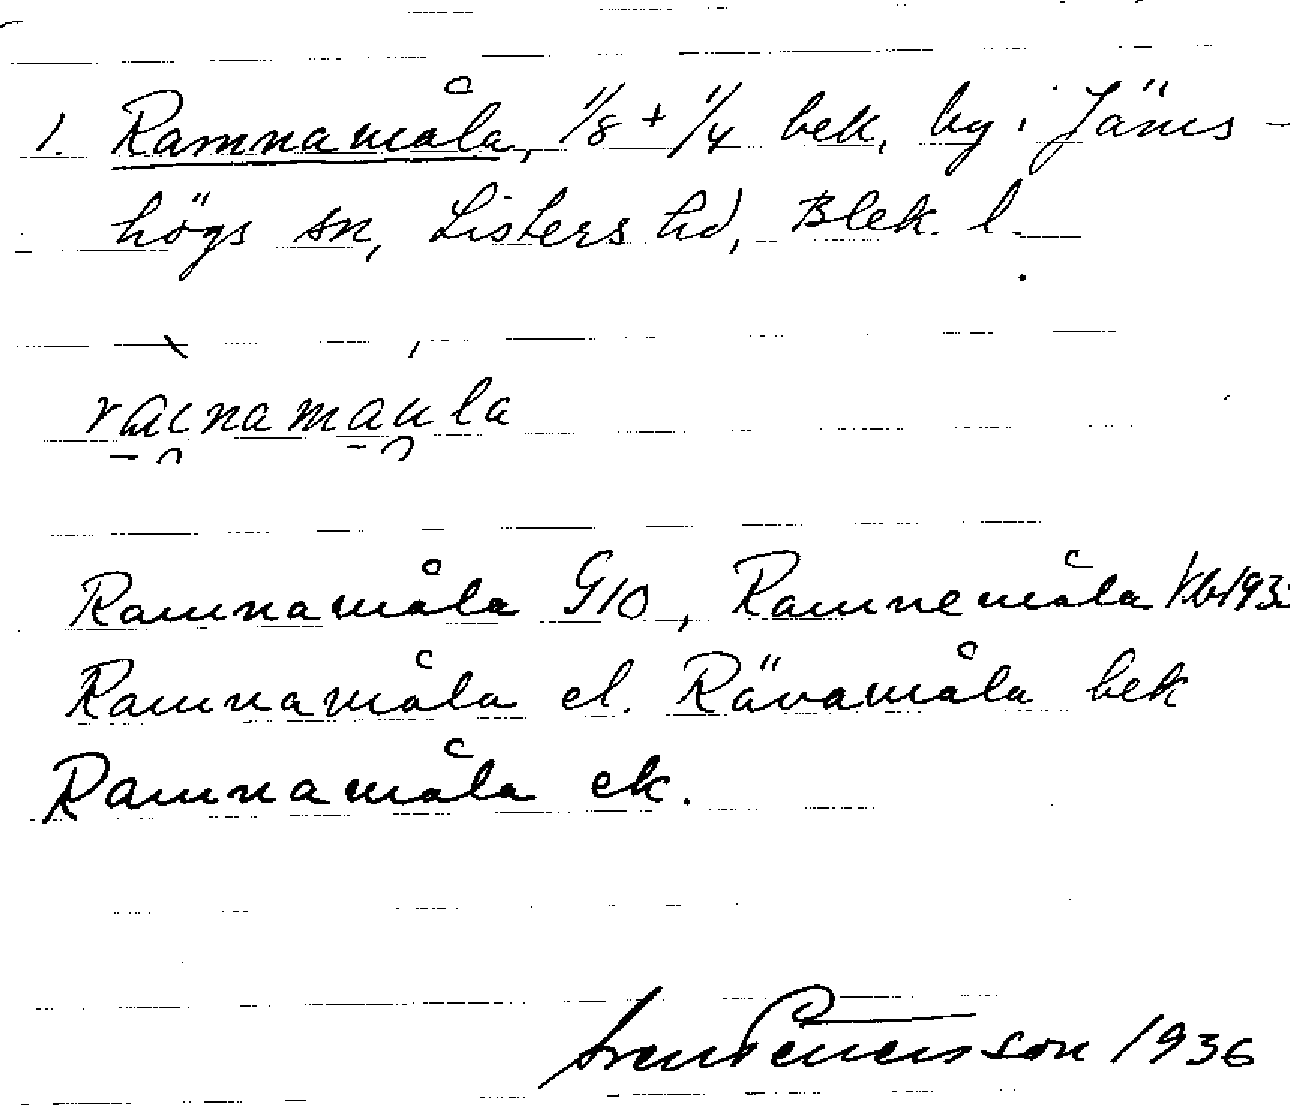 1. Ramnamåla, 1/8 + 1/4 bek, by i Jäms-
högs sn, Listers hd, Blek. l.
ràunamáula
Ramnamåla G10, Ramnemåla Jb193
Ramnamåla el. Rävamåla bek
Ramnamåla ek.
Sven Pettersson 1936